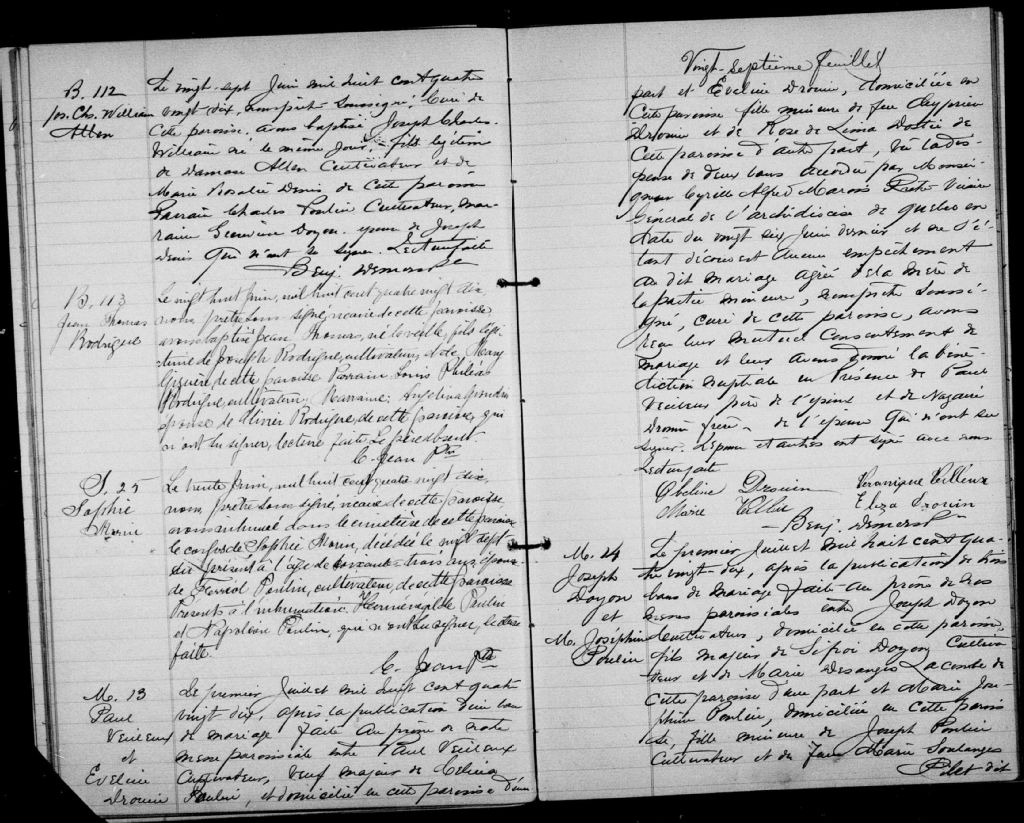 B. 112
Jos. Chs. William
Allen
Le vingt-sept Juin mil huit cent quatre
vingt dix, Soussigné, Curé de
Cette paroisse, avons baptisé Joseph Charles
William né le même jour, fils légitime
de Damase Allen Cultivateur et de
Marie Rosalie Denis de Cette paroisse
Parrain Charles Poulin Cultivateur, Mar-
raine Doyon épouse de Joseph
Denis Qui n'ont su signer. Lecture faite
Benj. Demers Ptre
B. 113
Jean Thomas
Rodrigue
Le vingt huit Juin, mil huit cent quatre vingt dix,
nous prêtre soussigné, vicaire de cette paroisse
avons baptisé Jean Thomas, né la veille, fils légi-
time de Joseph Rodrigue, cultivateur, et de Mary
Giguère, de cette paroisse. Parrain Louis
Rodrigue, cultivateur; Marraine; Angelina Grondin
épouse de Olivier Rodrigue, de cette paroisse, qui
n'ont su signer, lecture faite. Le père absent
C. Jean Ptre
S. 25
Sophie
Morin
Le trente Juin, mil huit cent quatre vingt dix,
nous, prêtre soussigné, vicaire de cette paroisse
avons inhumé dans le cimetière de cette paroisse
le corps de Sophie Morin, décédée le vingt sept
du présent à l'âge de soixante-trois ans, épouse
de Ferréol Poulin, cultivateur, de cette paroisse
Présents à l'inhumation: Herménégilde Poulin
et Napoléon Poulin, qui n'ont su signer, lecture
faite.
C. Jean Ptre
M. 13
Paul
Veilleux
et
Eveline
Drouin
Le premier Juillet mil huit cent quatre
vingt dix, après la publication d'un ban
de mariage faite au prône de notre
messe paroissiale entre Paul Veilleux
Cultivateur, Veuf majeur de Celina
Poulin, et domicilié en cette paroisse d'une
Vingt-septième feuillet
part et Eveline Drouin, domiciliée en
Cette paroisse fille mineure de feu Cyprien
Drouin et de Rose de Lima Dostie de
Cette paroisse d'autre part, Vu la dis-
pense de deux bans accordée par Monsei-
gneur Cyrille Alfred Marois Ptre Vicaire
Général de l'archidiocèse de Québec en
date du vingt six Juin dernier et ne s'é-
tant découvert aucun empêchement
au dit mariage agréé de la mère de
la partie mineure, soussi-
gné, curé de cette paroisse, avons
reçu leur mutuel Consentement de
mariage et leur avons donné la béné-
diction nuptiale en Présence de Paul
Veilleux père de l'époux et de Nazaire
Drouin frère de l'épouse Qui n'ont su
signer. L'épouse et autres ont signé avec nous
Lecture faite
Obeline Drouin Véronique Veilleux
Marie Eliza Drouin
Benj. Demers Ptre
M. 14
Joseph
Doyon
et
M. Josephine
Poulin
Le premier Juillet mil huit cent qua-
tre vingt-dix, après la publication de trois
bans de mariage faite au prône de nos
messes paroissiales entre Joseph Doyon
Cultivateur, domicilié en cette paroisse,
fils majeur de Doyon Cultiva-
teur et de Marie Desanges Lacombe de
Cette paroisse d'une part et Marie Jose-
phine Poulin, domiciliée en Cette parois
se, fille mineure de Joseph Poulin
Cultivateur et de feu Marie Soulanges
dit